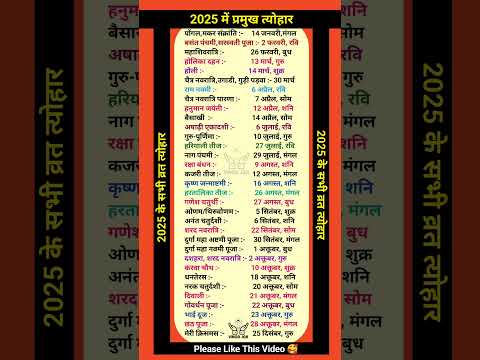 2025 में प्रमुख त्योहार
पोंगल,मकर संक्रांति :- 14 जनवरी,मंगल
बसंत पंचमी,सरस्वती पूजा :- 2 फरवरी, रवि
महाशिवरात्रि :- 26 फरवरी, बुध
होलिका दहन :- 13 मार्च, गुरु
होली :- 14 मार्च, शुक्र
चैत्र नवरात्रि,उगाडी, गुड़ी पड़वा :- 30 मार्च
राम नवमी :- 6 अप्रैल, रवि
चैत्र नवरात्रि पारणा :- 7 अप्रैल, सोम
हनुमान जयंती :- 12 अप्रैल, शनि
बैसाखी :- 14 अप्रैल, सोम
अषाढ़ी एकादशी :- 6 जुलाई, रवि
गुरु-पूर्णिमा :- 10 जुलाई, गुरु
हरियाली तीज :- 27 जुलाई, रवि
नाग पंचमी :- 29 जुलाई, मंगल
रक्षा बंधन :- 9 अगस्त, शनि
कजरी तीज :- 12 अगस्त, मंगल
कृष्ण जन्माष्टमी :- 16 अगस्त, शनि
हरतालिका तीज :- 26 अगस्त, मंगल
गणेश चतुर्थी :- 27 अगस्त, बुध
ओणम/थिरुवोणम :- 5 सितंबर, शुक्र
अनंत चतुर्दशी :- 6 सितंबर, शनि
शरद नवरात्रि :- 22 सितंबर, सोम
दुर्गा महा अष्टमी पूजा :- 30 सितंबर, मंगल
दुर्गा महा नवमी पूजा :- 1 अक्तूबर, बुध
दशहरा, शरद नवरात्रि :- 2 अक्तूबर, गुरु
करवा चौथ :- 10 अक्तूबर, शुक्र
धनतेरस :- 18 अक्तूबर, शनि
नरक चतुर्दशी :- 20 अक्तूबर, सोम
दिवाली :- 21 अक्तूबर, मंगल
गोवर्धन पूजा :- 22 अक्तूबर, बुध
भाई दूज :- 23 अक्तूबर, गुरु
छठ पूजा :- 28 अक्तूबर, मंगल
मेरी क्रिसमस :- 25 दिसंबर, गुरु
2025 के सभी व्रत त्योहार
2025 के सभी व्रत त्योहार
Please Like This Video 🥰